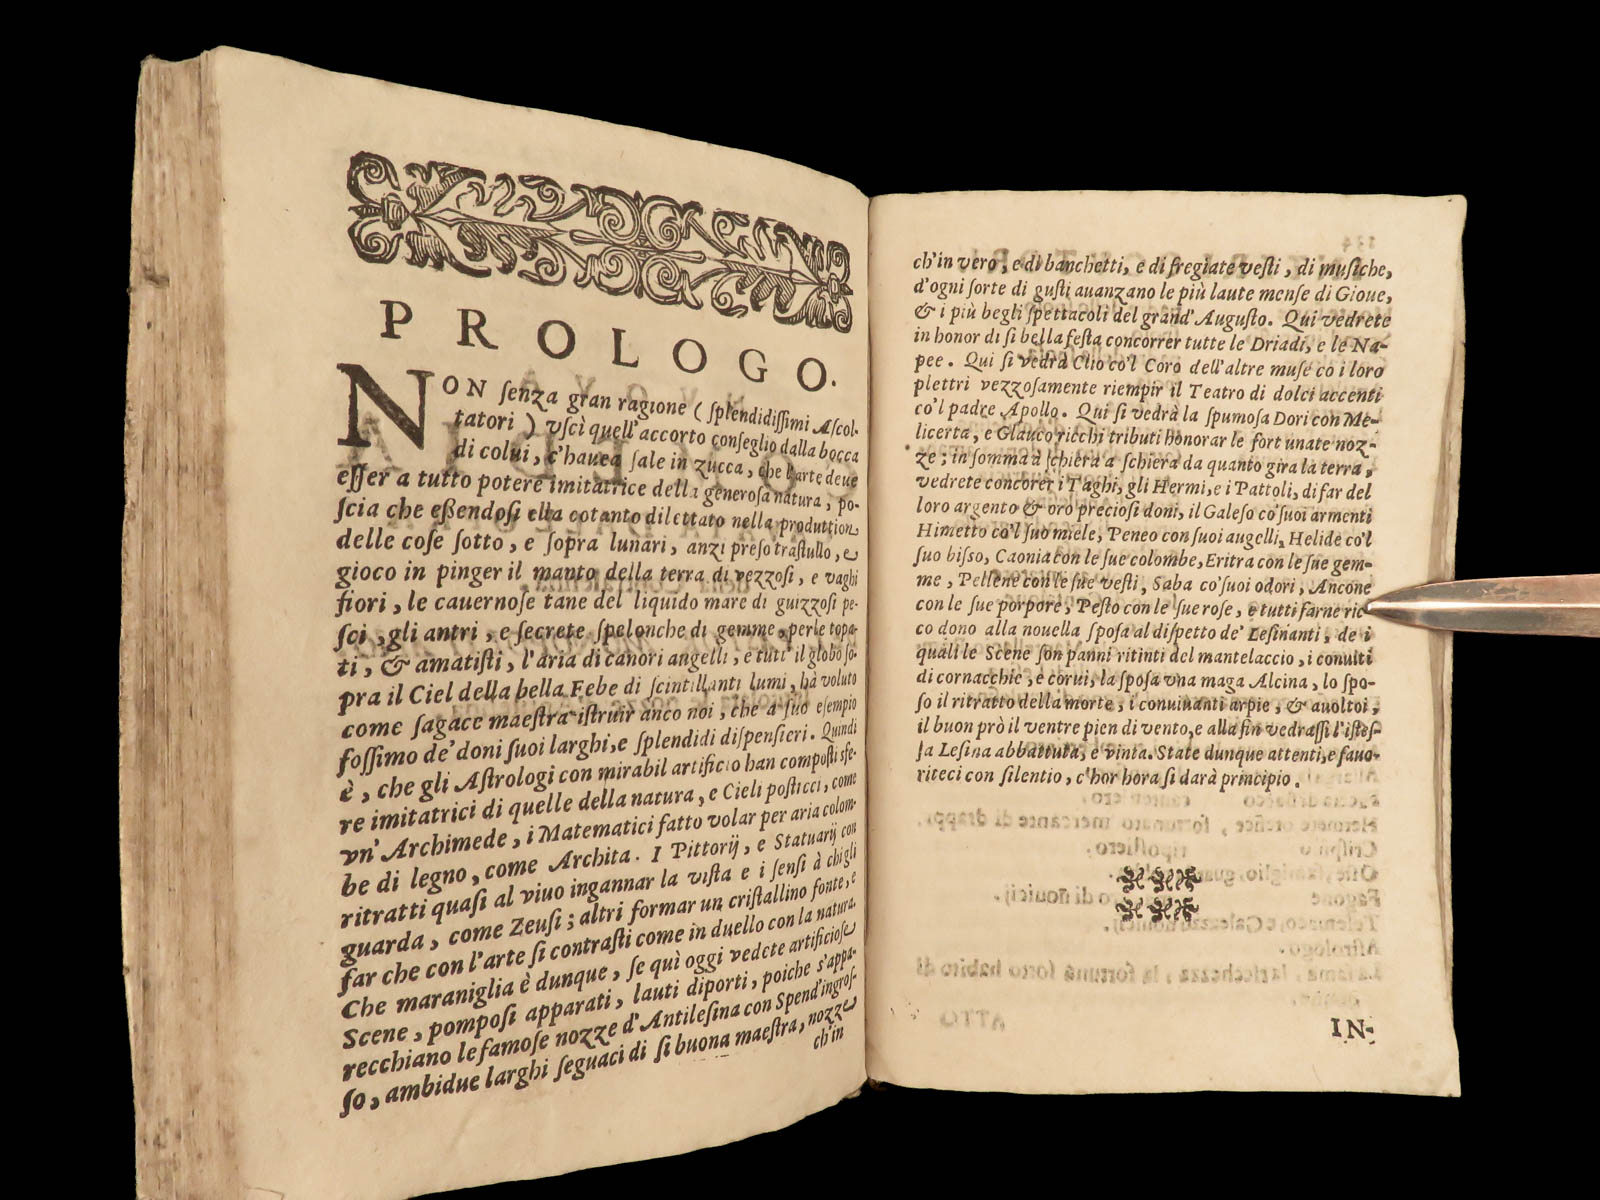 PROLOGO.
NON ſenza gran ragione ( ſplendidiſſimi Aſcol-
tatori ) vſcì quell'accorto conſeglio dalla bocca
di colui, c'hauea ſale in zucca, che l'arte deue
eſſer a tutto potere imitatrice della generoſa natura, po-
ſcia che eßendoſi ella cotanto dilettato nella produttion
delle coſe ſotto, e ſopra lunari, anzi preſo traſtullo, e
gioco in pinger il manto della terra di vezzoſi, e vaghi
fiori, le cauernoſe tane del liquido mare di guizzoſi pe-
ſci, gli antri, e ſecrete ſpelonche di gemme, perle topa-
ti, & amatiſti, l'aria di canori augelli, e tutt' il globo ſo-
pra il Ciel della bella Febe di ſcintillanti lumi, hà voluto
come ſagace maeſtra iſtruir anco noi, che a ſuo eſempio
foſſimo de' doni ſuoi larghi, e ſplendidi diſpenſieri. Quindi
è, che gli Aſtrologi con mirabil artificio han compoſti sfe-
re imitatrici di quelle della natura, e Cieli poſticci, come
vn' Archimede, i Matematici fatto volar per aria colom-
be di legno, come Archita. I Pittorij, e Statuarij con
ritratti quaſi al viuo ingannar la viſta e i ſenſi à chigli
guarda, come Zeuſi; altri formar un criſtallino fonte, e
far che con l'arte ſi contraſti come in duello con la natura.
Che marauiglia è dunque, ſe quì oggi vedete artificioſe
Scene, pompoſi apparati, lauti diporti, poiche s'appa-
recchiano le famoſe nozze d'Antileſina con Spend'ingroſ-
ſo, ambidue larghi ſeguaci di ſi buona maeſtra, nozze
ch'in
ch'in vero, e di banchetti, e di fregiate veſti, di muſiche,
d'ogni ſorte di guſti auanzano le più laute menſe di Gioue,
& i più begli ſpettacoli del grand' Auguſto. Qui vedrete
in honor di ſi bella feſta concorrer tutte le Driadi, e le Na-
pee. Qui ſi vedrà Clio co'l Coro dell'altre muſe co i loro
plettri vezzoſamente riempir il Teatro di dolci accenti
co'l padre Apollo. Qui ſi vedrà la ſpumoſa Dori con Me-
licerta, e Glauco ricchi tributi honorar le fortunate noz-
ze; in ſomma à ſchiera a ſchiera da quanto gira la terra,
vedrete concorer i Taghi, gli Hermi, e i Pattoli, di far del
loro argento & oro precioſi doni, il Galeſo co'ſuoi armenti
Himetto co'l ſuo miele, Peneo con ſuoi augelli, Helide co'l
ſuo biſſo, Caonia con le ſue colombe, Eritra con le ſue gem-
me, Pellene con le ſue veſti, Saba co'ſuoi odori, Ancone
con le ſue porpore, Peſto con le ſue roſe, e tutti farne ric-
co dono alla nouella ſpoſa al diſpetto de' Leſinanti, de i
quali le Scene ſon panni ritinti del mantelaccio, i conuiti
di cornacchie, e corui, la ſpoſa vna maga Alcina, lo ſpo-
ſo il ritratto della morte, i conuiuanti arpie, & auoltoi,
il buon prò il ventre pien di vento, e alla fin vedraſſi l'iſteſ-
ſa Leſina abbattuta, e vinta. State dunque attenti, e fauo-
riteci con ſilentio, c'hor hora ſi darà principio.
IN-